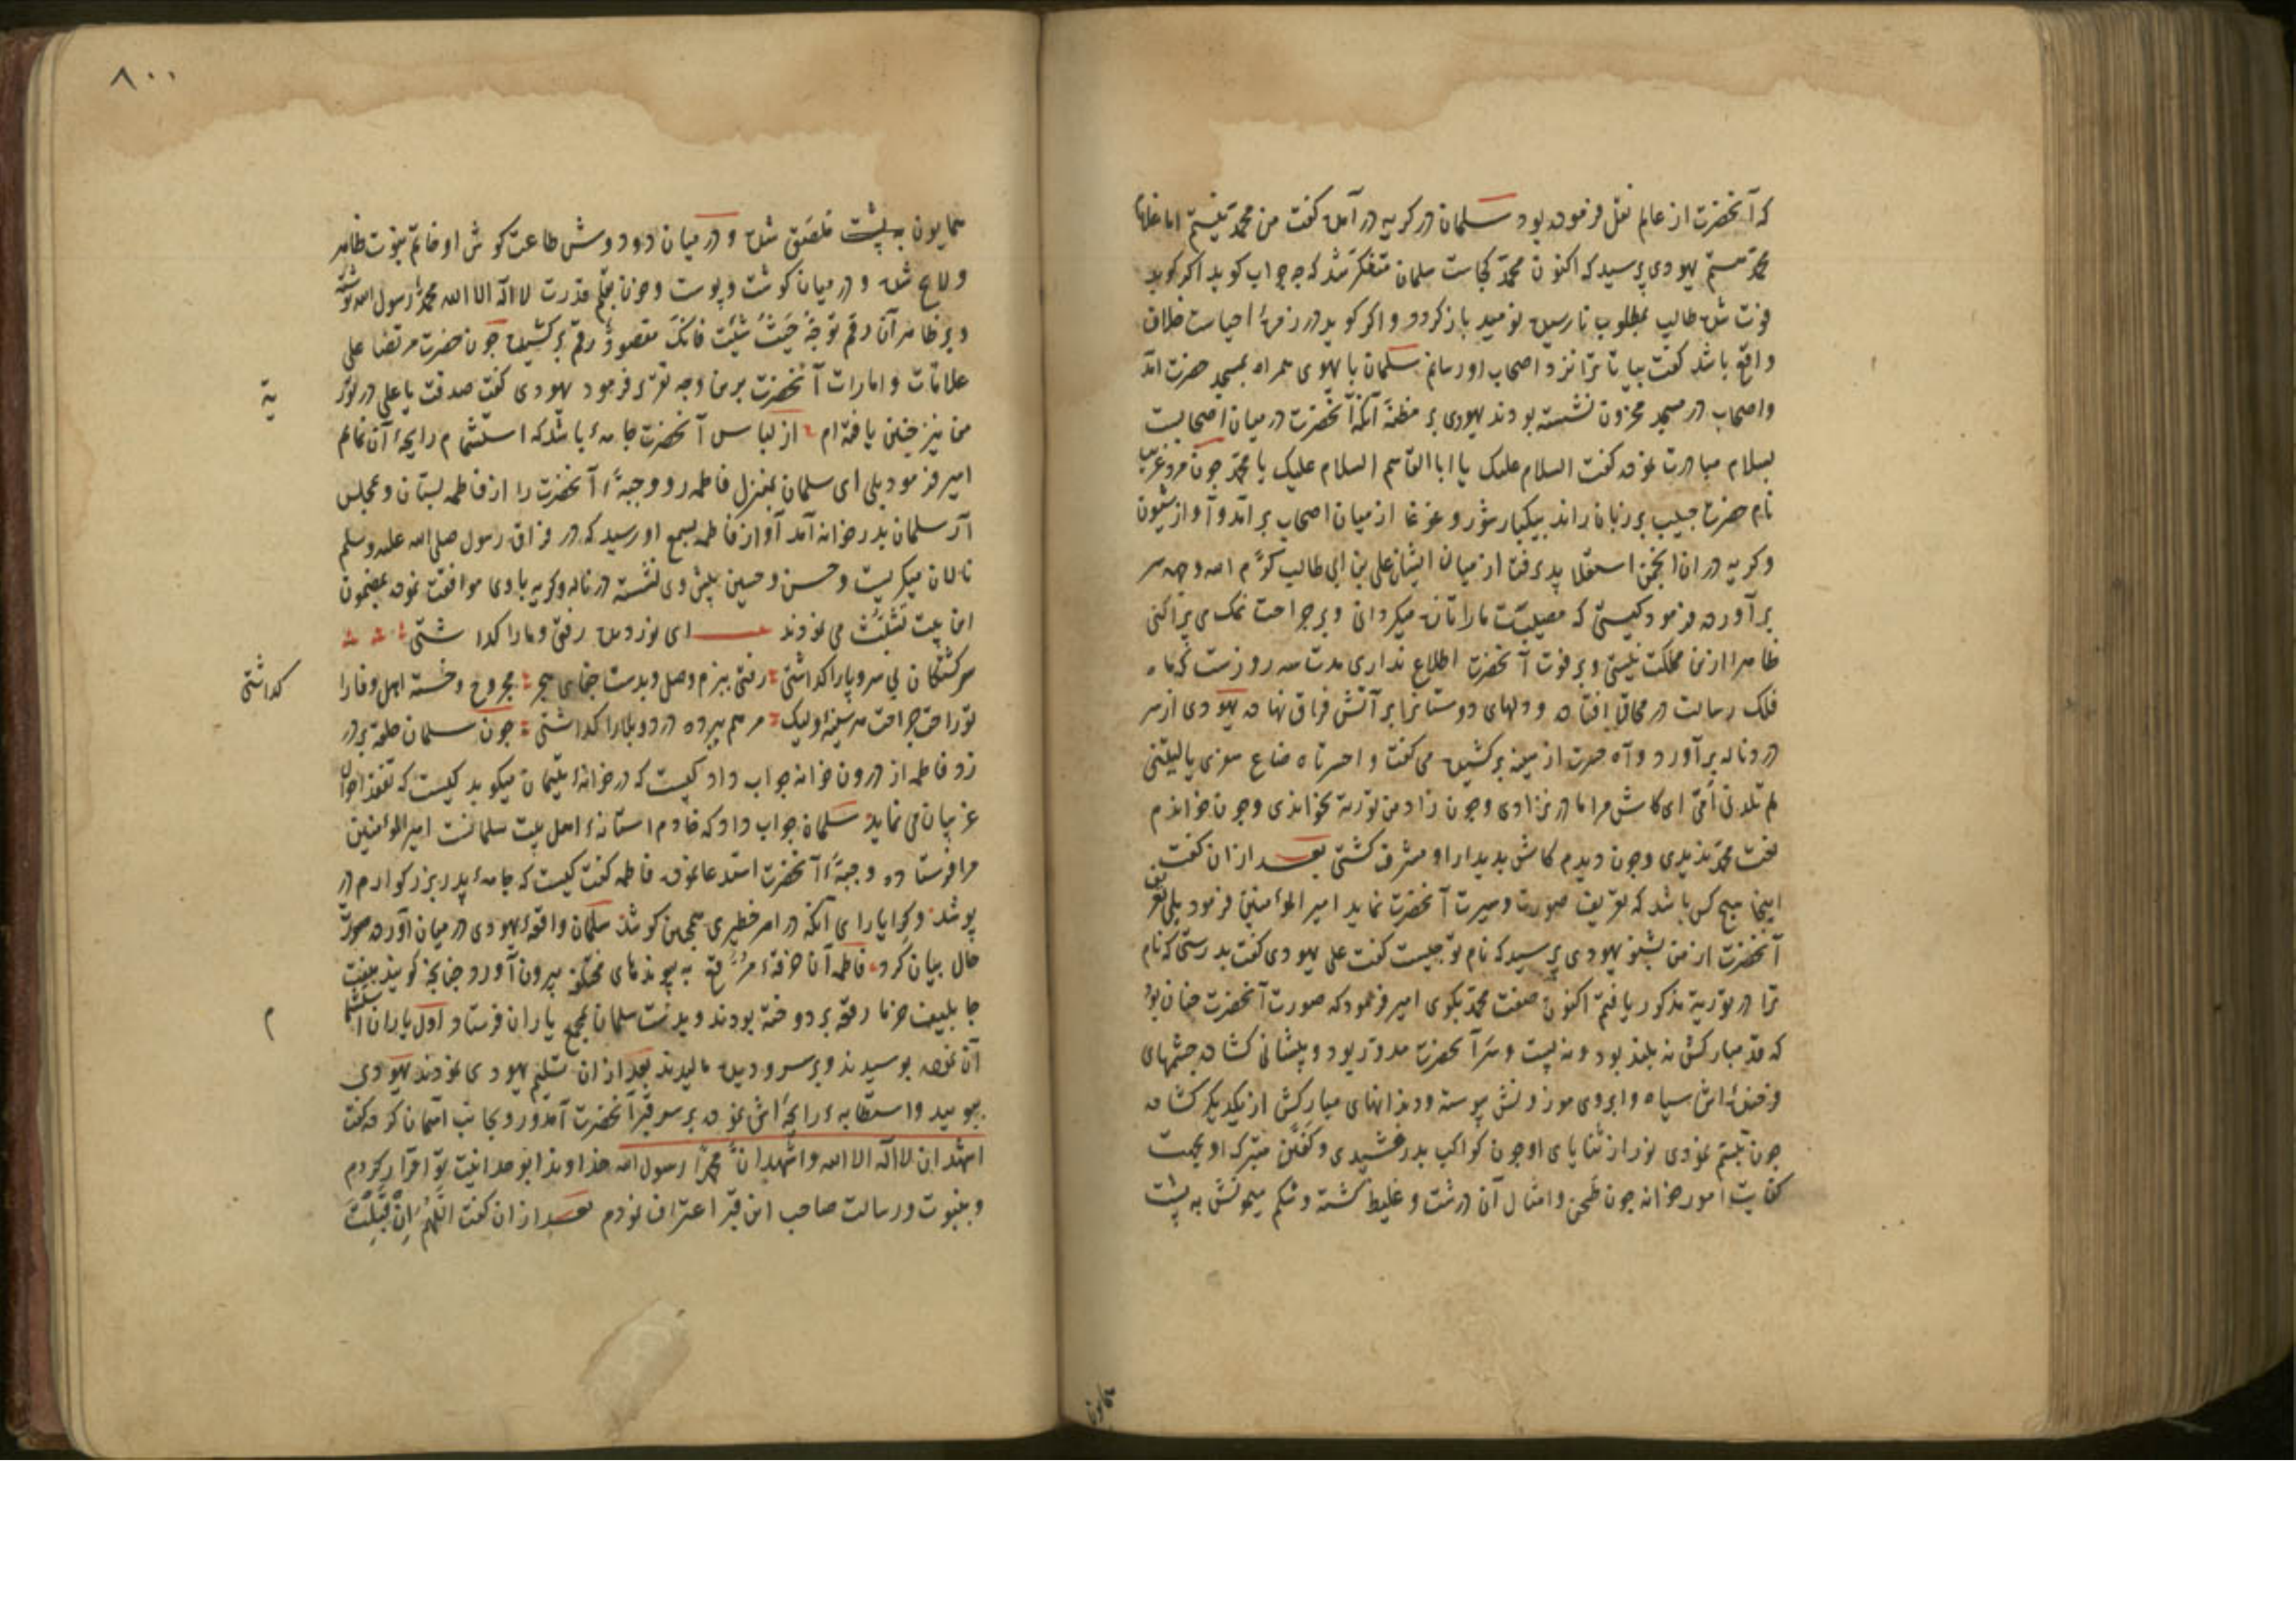 که آنحضرت از عالم نقل فرموده بود سلمان در کریه در آمده کفت من محمد نیستم اما غلام
محمد هستم یهودی پرسید که اکنون محمد کجاست سلمان متفکر شد که چه جواب کوید اکر کوید
فوت شده طالب بمطلوب نارسیده نومید باز کردد و اکر کوید در زمرهٔ احیاست خلاف
واقع باشد کفت بیا تا ترا نزد اصحاب او رسانم سلمان با یهودی همراه بمسجد حضرت آمد
واصحاب در مسجد محزون نشسته بودند یهودی بر مظنهٔ آنکه آنحضرت در میان اصحابست
بسلام مبادرت نموده کفت السلام علیک یا ابا القاسم السلام علیک یا محمد چون مرد غریب
نام حضرت حبیب بر زبان راند بیکبار شور و غوغا از میان اصحاب برآمد و آواز شیون
وکریه در ان انجمن استعلا پذیرفت از میان ایشان علی بن ابی طالب کرم الله وجهه سر
برآورده فرمود کیستی که مصیبت ما را تازه میکردانی و بر جراحت نمک می پراکنی
ظاهرا ازین مملکت نیستی و بر فوت آنحضرت اطلاع نداری مدت سه روزست که ماه
فلک رسالت در محاق افتاده و دلهای دوستانرا بر آتش فراق نهاده یهودی از سر
درد ناله برآورد و آه حسرت از سینه برکشیده می کفت واحسرتاه ضاع سفری یا لیتنی
لم تلدنی امی ای کاش مرا مادر نزادی وچون زاد من توریة نخواندی وچون خواندم
نعت محمد ندیدی وچون دیدم کاش بدیدار او مشرف کشتی بعد از ان کفت
اینجا هیچ کس باشد که تعریف صورت و سیرت آنحضرت نماید امیر المؤمنین فرمود بلی تعریف
آنحضرت از من بشنو یهودی پرسید که نام تو چیست کفت علی یهودی کفت بدرستی که نام
ترا در توریة مذکور یافتم اکنون صفت محمد بکوی امیر فرمود که صورت آنحضرت چنان بود
که قد مبارکش نه بلند بود و نه پست و سر آنحضرت مدور بود و پیشانی کشاده چشمهای
فرخنده اش سیاه و ابروی موزونش پیوسته و دندانهای مبارکش از یکدیکر کشاده
چون تبسم نمودی نور از ثنایای او چون کواکب بدرخشیدی و کفین متبرکه او بجهت
کفایت امور خانه چون طحن و امثال آن درشت و غلیظ کشته و شکم میمونش به پشت
همایون
٨٠٠
همایون به پشت ملصق شده و در میان دو دوش طاعت کوش او خاتم نبوت ظاهر
ولایح شده و در میان کوشت و پوست وخون بقلم قدرت لا اله الا الله محمد رسول الله نوشته
و بر ظاهر آن رقم توجه حیث شئت فانک مقصود رقم برکشیده چون حضرت مرتضا علی
علامات و امارات آنحضرت برین وجه تقریر فرمود یهودی کفت صدقت یا علی در توریة
من نیز چنین یافته ام از لباس آنحضرت جامهٔ باشد که استشمام رایحهٔ آن نمایم
امیر فرمود بلی ای سلمان بمنزل فاطمه رو و جبهٔ آنحضرت را از فاطمه بستان و بمجلس
آر سلمان بدر خانه آمد آواز فاطمه بسمع او رسید که در فراق رسول صلی الله علیه وسلم
نالان میکریست وحسن وحسین پیش وی نشسته در ناله وکریه با وی موافقت نموده بمضمون
این بیت تشبث می نمودند ای نور دیده رفتی و ما را کداشتی
سرکشتکان بی سر و پا را کداشتی رفتی ببزم وصل و بدست جفای هجر مجروح وخسته اهل وفا را کداشتی
تو راحت جراحت هر سینهٔ ولیک مرهم ببرده درد و بلا را کداشتی چون سلمان حلقه بر در
زد فاطمه از درون خانه جواب داد کیست که در خانهٔ یتیمان میکوبد کیست که تفقد احوال
غریبان می نماید سلمان جواب داد که خادم استانهٔ اهل بیت سلمانست امیر المؤمنین
مرا فرستاده و جبهٔ آنحضرت استدعا نموده فاطمه کفت کیست که جامهٔ پدر بزرکوارم در
پوشد و کرا یارای آنکه در امر خطیری همچنین کوشد سلمان واقعهٔ یهودی در میان آورده صورت
حال بیان کرد فاطمه آن خرقهٔ مرقع به پیوندهای مختلفه بیرون آورد چنانچه کویند بهفت
جا بلیف خرما رقعه بر دوخته بودند و بدست سلمان بمجمع یاران فرستاد اول یاران استشمام
آن نموده بوسیدند و بر سر و دیده مالیدند بعد از ان تسلیم یهودی نمودند یهودی
ببویید و استطابهٔ رایحه اش نموده بر سر قبر آنحضرت آمد و رو بجانب آسمان کرده کفت
اشهد ان لا اله الا الله واشهد ان محمدا رسول الله خداوندا بوحدانیت تو اقرار کردم
و بنبوت و رسالت صاحب این قبر اعتراف نمودم بعد از ان کفت اللهم ان قبلت